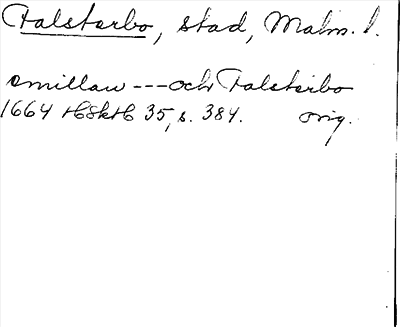 Falsterbo, stad, Malm. l.
emillan --- och Falsterbo
1664 HSkH 35, s. 384. orig.